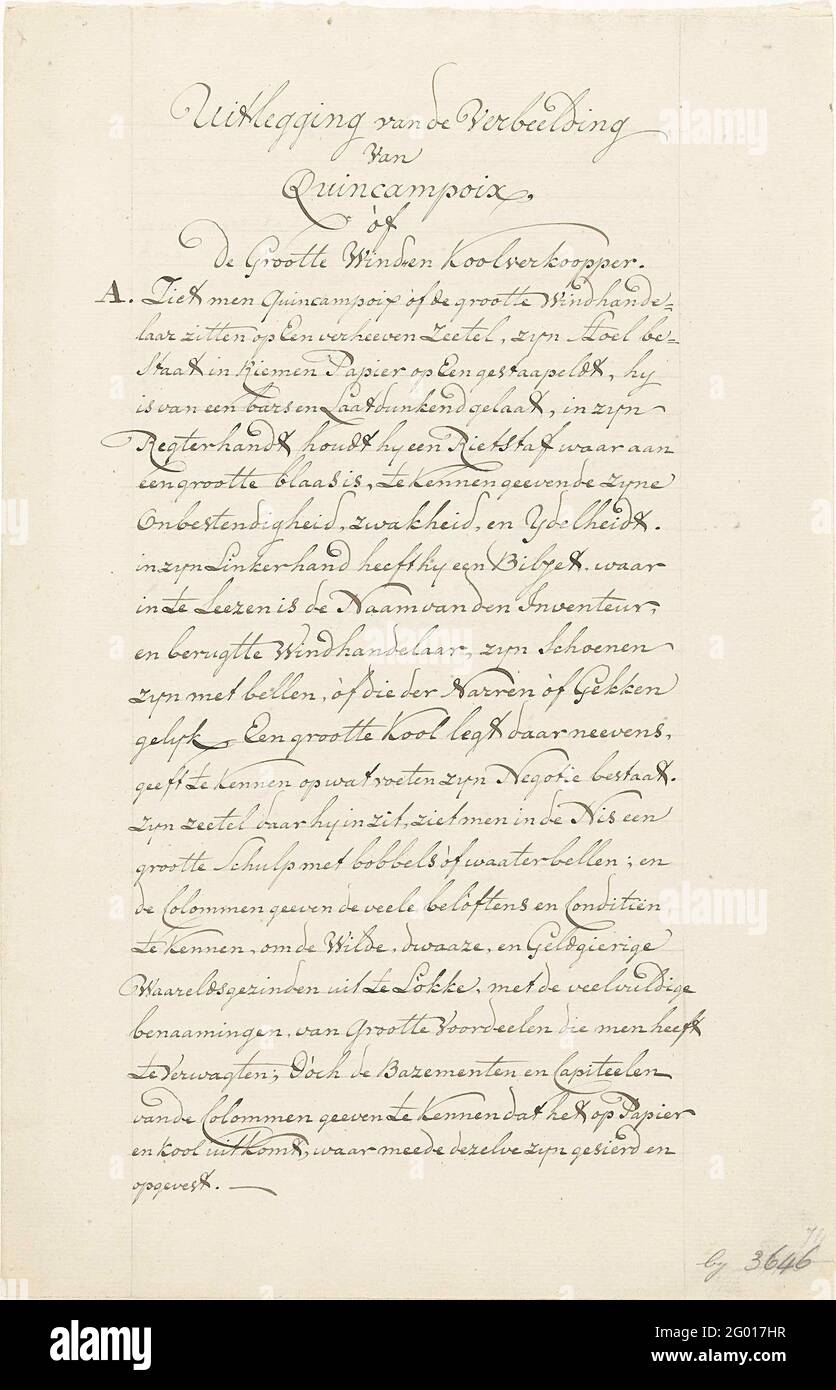 Uitlegging van de Verbeelding
van
Quincampoix,
òf
De Grootte Wind en Koolverkoopper.
A. Ziet men Quincampoix òf de grootte Windhande=
laar zitten op Een verheeven Zeetel, zyn Stoel be=
Staat in Riemen Papier op Een gestaapeldt, hy
is van een bars en Laatdunkend gelaat, in zyn
Regterhandt houdt hy een Rietstaf waar aan
een grootte blaas is, te Kennen geevende zyne
Onbestendigheid, zwakheid, en Ydelheidt.
in zyn Linkerhand heeft hy een Biljet. waar
in te Leezen is de Naam van den Inventeur,
en berugtte Windhandelaar, zyn Schoenen
zyn met bellen, òf die der Narren òf Gekken
gelyk. Een grootte Kool legt daar neevens,
geeft te Kennen op wat voeten zyn Negotie bestaat.
zyn zeetel daar hy in zit, ziet men in de Nis een
grootte Schulp met bobbels òf waaterbellen; en
de Colommen geeven de veele beloftens en Conditiën
te Kennen, om de Wilde, dwaaze, en Geldgierige
Waareldsgezinden uit te Lokke, met de veelvuldige
benaamingen, van Grootte Voordeelen die men heeft
te Verwagten; Dòch de Bazementen en Capiteelen
van de Colommen geeven te Kennen dat het op Papier
en Kool uitkomt, waar meede dezelve zyn gesierd en
opgevest. —
by 3646
alamy
Image ID: 2G017HR
www.alamy.com